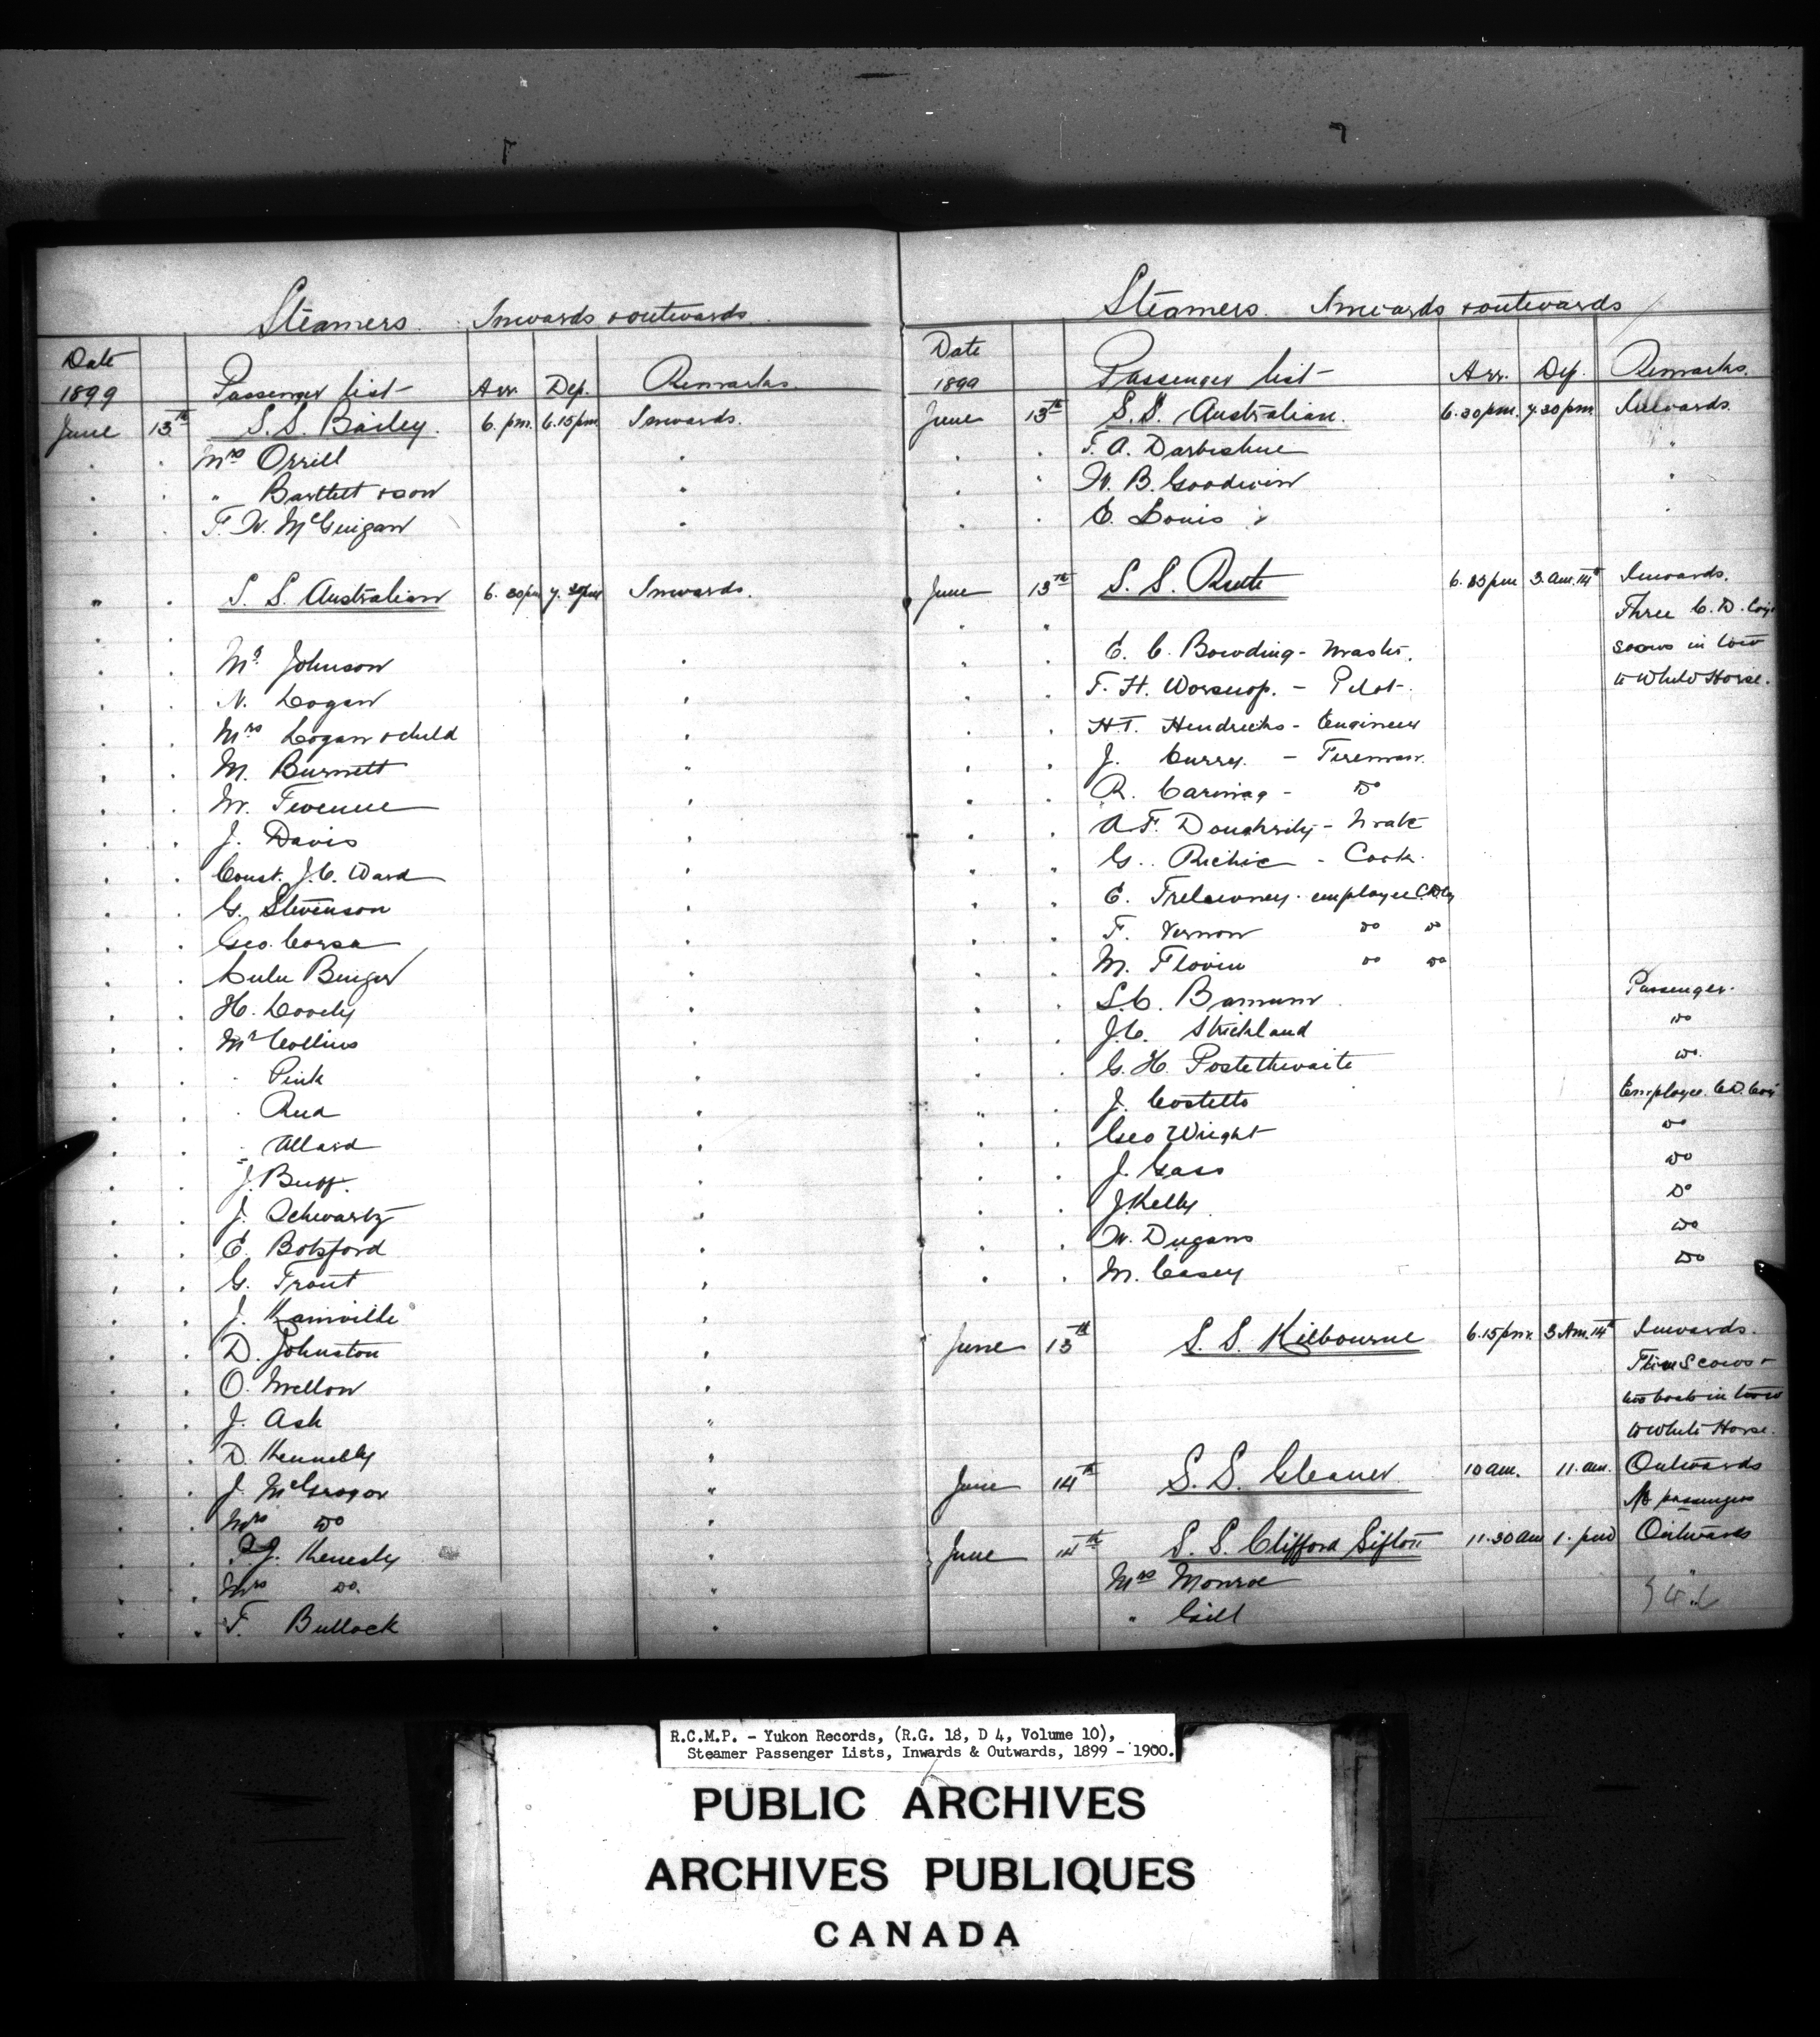 Steamers. Inwards & outwards.
Date
1899 Passenger list Arr. Dep. Remarks.
June 13th S.S. Bailey. 6. pm. 6.15 pm Inwards.
Mrs Orrill "
" Bartlett & son "
F. W. McGuigan "
" S. S. Australian 6.30 pm 7.30 pm Inwards.
Mr. Johnson "
N. Logan "
Mrs Logan & child "
M. Burnett "
W. "
J. Davis "
Const. J. C. Ward "
G. Stevenson "
Geo. Corsa "
Lulu "
H. Lovely "
Mr Collins "
" Pink "
" Rea "
" Allard "
J. Buff. "
J. Schwartz "
E. Botsford "
G. Trout "
J. "
D. Johnston "
O. Mellon "
J. Ash "
D. Kennelly "
J. McGregor "
Mrs Do "
Kenealy "
Mrs Do. "
F. Bullock "
Steamers. Inwards & outwards
Date
1899 Passenger list Arr. Dep. Remarks.
June 13th S.S. Australian. 6.30 pm. 7.30 pm. Inwards.
F. A. Darbishire "
W. B. Goodwin "
E. Louis "
June 13th S. S. Ruth 6.35 pm 3. am. 14th Inwards.
Three C. D. Coy's
scows in tow
to White Horse.
E. C. Bowding - Master.
F. H. Worsnop. - Pilot.
H.T. Hendricks - Engineer
J. Curry. - Fireman.
R. - Do
A F. Doughrity - Mate
G. Richie - Cook.
E. Trelawney. employee C.D. Coy
F. Vernon Do Do
M. Flovin Do Do
S. C. Barnum Passenger.
J. C. Strickland Do
G. H. Postethwaite Do.
J. Costello Employee. C.D. Coy
Geo Wright Do
J. Gass Do
J. Kelly Do
W. Dugans Do
M. Casey Do
June 13th S. S. Kilbourne 6.15 pm. 3 Am. 14th Inwards.
Three Scows &
two boats in tow
to White Horse.
June 14th S. S. Gleaner 10 am. 11. am. Outwards
No passengers
June 14th S. S. Clifford Sifton 11.30 am 1. pm Outwards
Mrs Monroe "
" Gill "
R.C.M.P. - Yukon Records, (R.G. 18, D 4, Volume 10),
Steamer Passenger Lists, Inwards & Outwards, 1899 - 1900.
PUBLIC ARCHIVES
ARCHIVES PUBLIQUES
CANADA